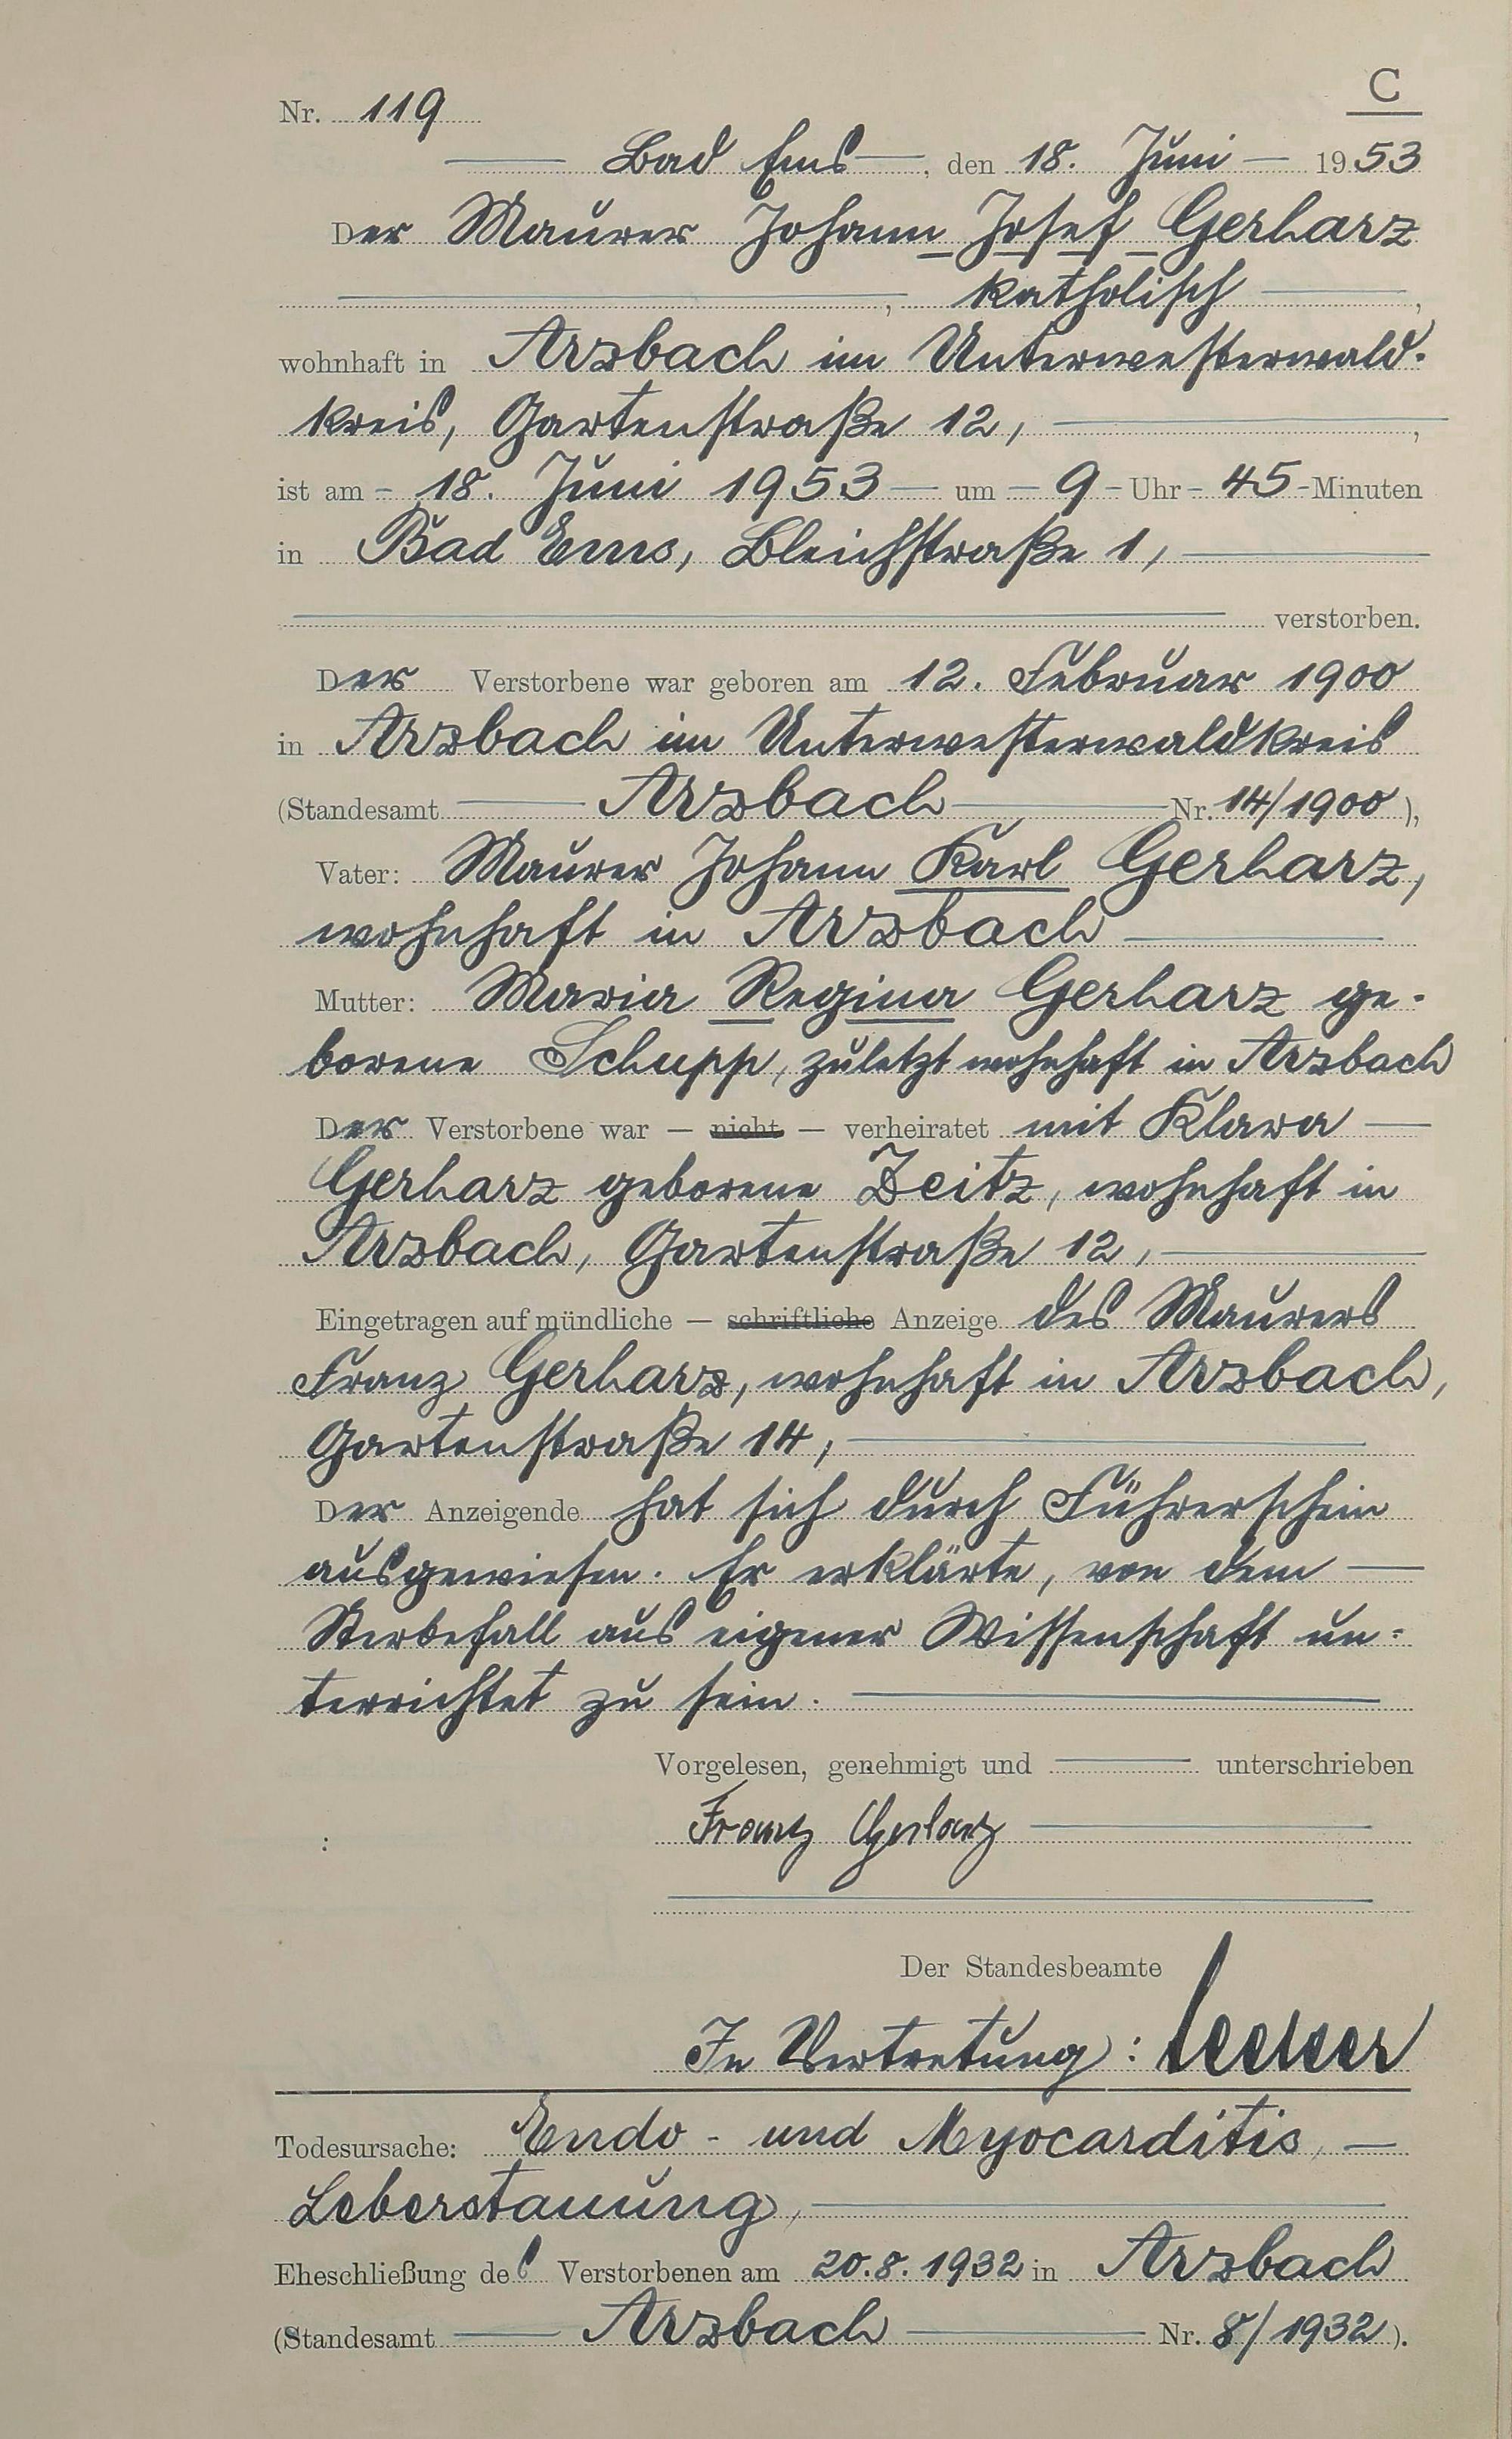 C
Nr. 119
Bad Ems, den 18. Juni 1953
Der Maurer Johann Josef Gerharz
, katholisch,
wohnhaft in Arzbach im Unterwesterwald-
kreis, Gartenstraße 12, ,
ist am - 18. Juni 1953 — um — 9 - Uhr - 45 - Minuten
in Bad Ems, Bleichstraße 1,
verstorben.
Der Verstorbene war geboren am 12. Februar 1900
in Arzbach im Unterwesterwaldkreis
(Standesamt Arzbach Nr. 14/1900),
Vater: Maurer Johann Karl Gerharz,
wohnhaft in Arzbach
Mutter: Maria Regina Gerharz ge-
borene Schupp, zuletzt wohnhaft in Arzbach
Der Verstorbene war — nicht — verheiratet mit Klara
Gerharz geborene Zeitz, wohnhaft in
Arzbach, Gartenstraße 12,
Eingetragen auf mündliche — schriftliche Anzeige des Maurers
Franz Gerharz, wohnhaft in Arzbach,
Gartenstraße 14,
Der Anzeigende hat sich durch Führerschein
ausgewiesen. Er erklärte, von dem
Sterbefall aus eigener Wissenschaft un-
terrichtet zu sein.
Vorgelesen, genehmigt und unterschrieben
Franz Gerharz
Der Standesbeamte
In Vertretung:
Todesursache: Endo- und Myocarditis,
Leberstauung,
Eheschließung des Verstorbenen am 20.8.1932 in Arzbach
(Standesamt Arzbach Nr. 8/1932).